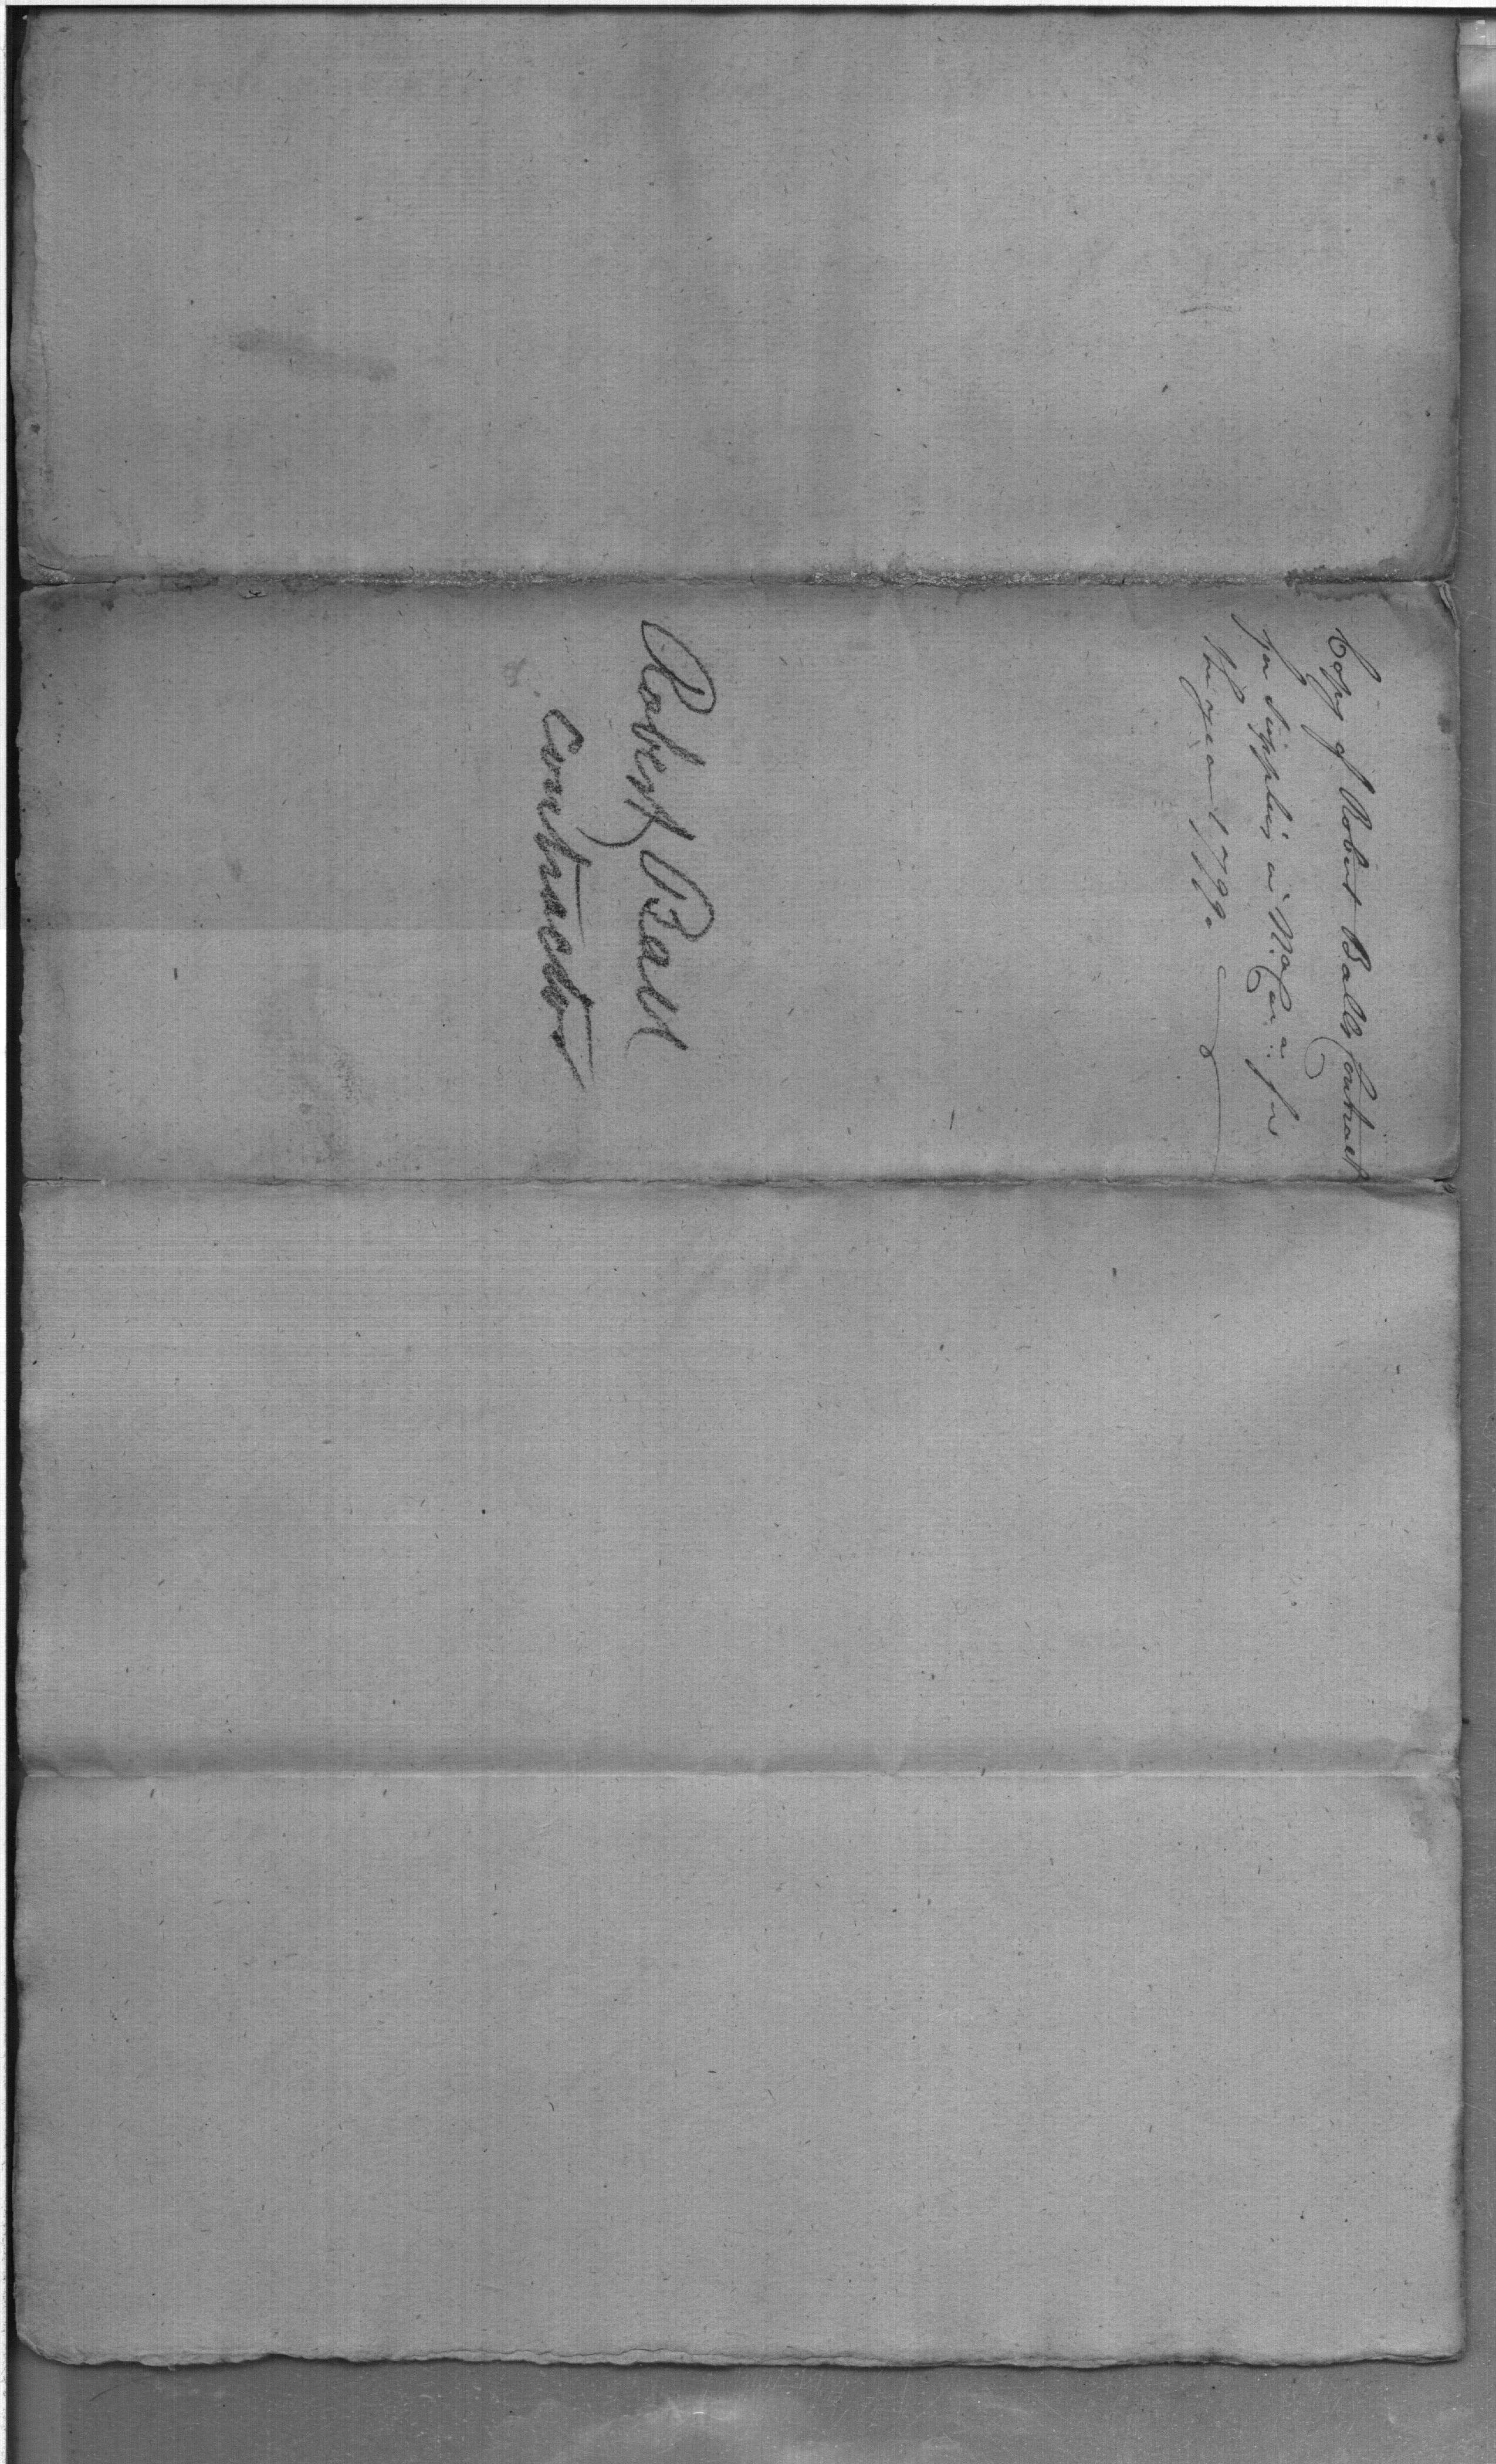 Copy of Robert Balls Contract
for Supplies in N. Car.a for
the year 1799.
Robert Ball
Contractor